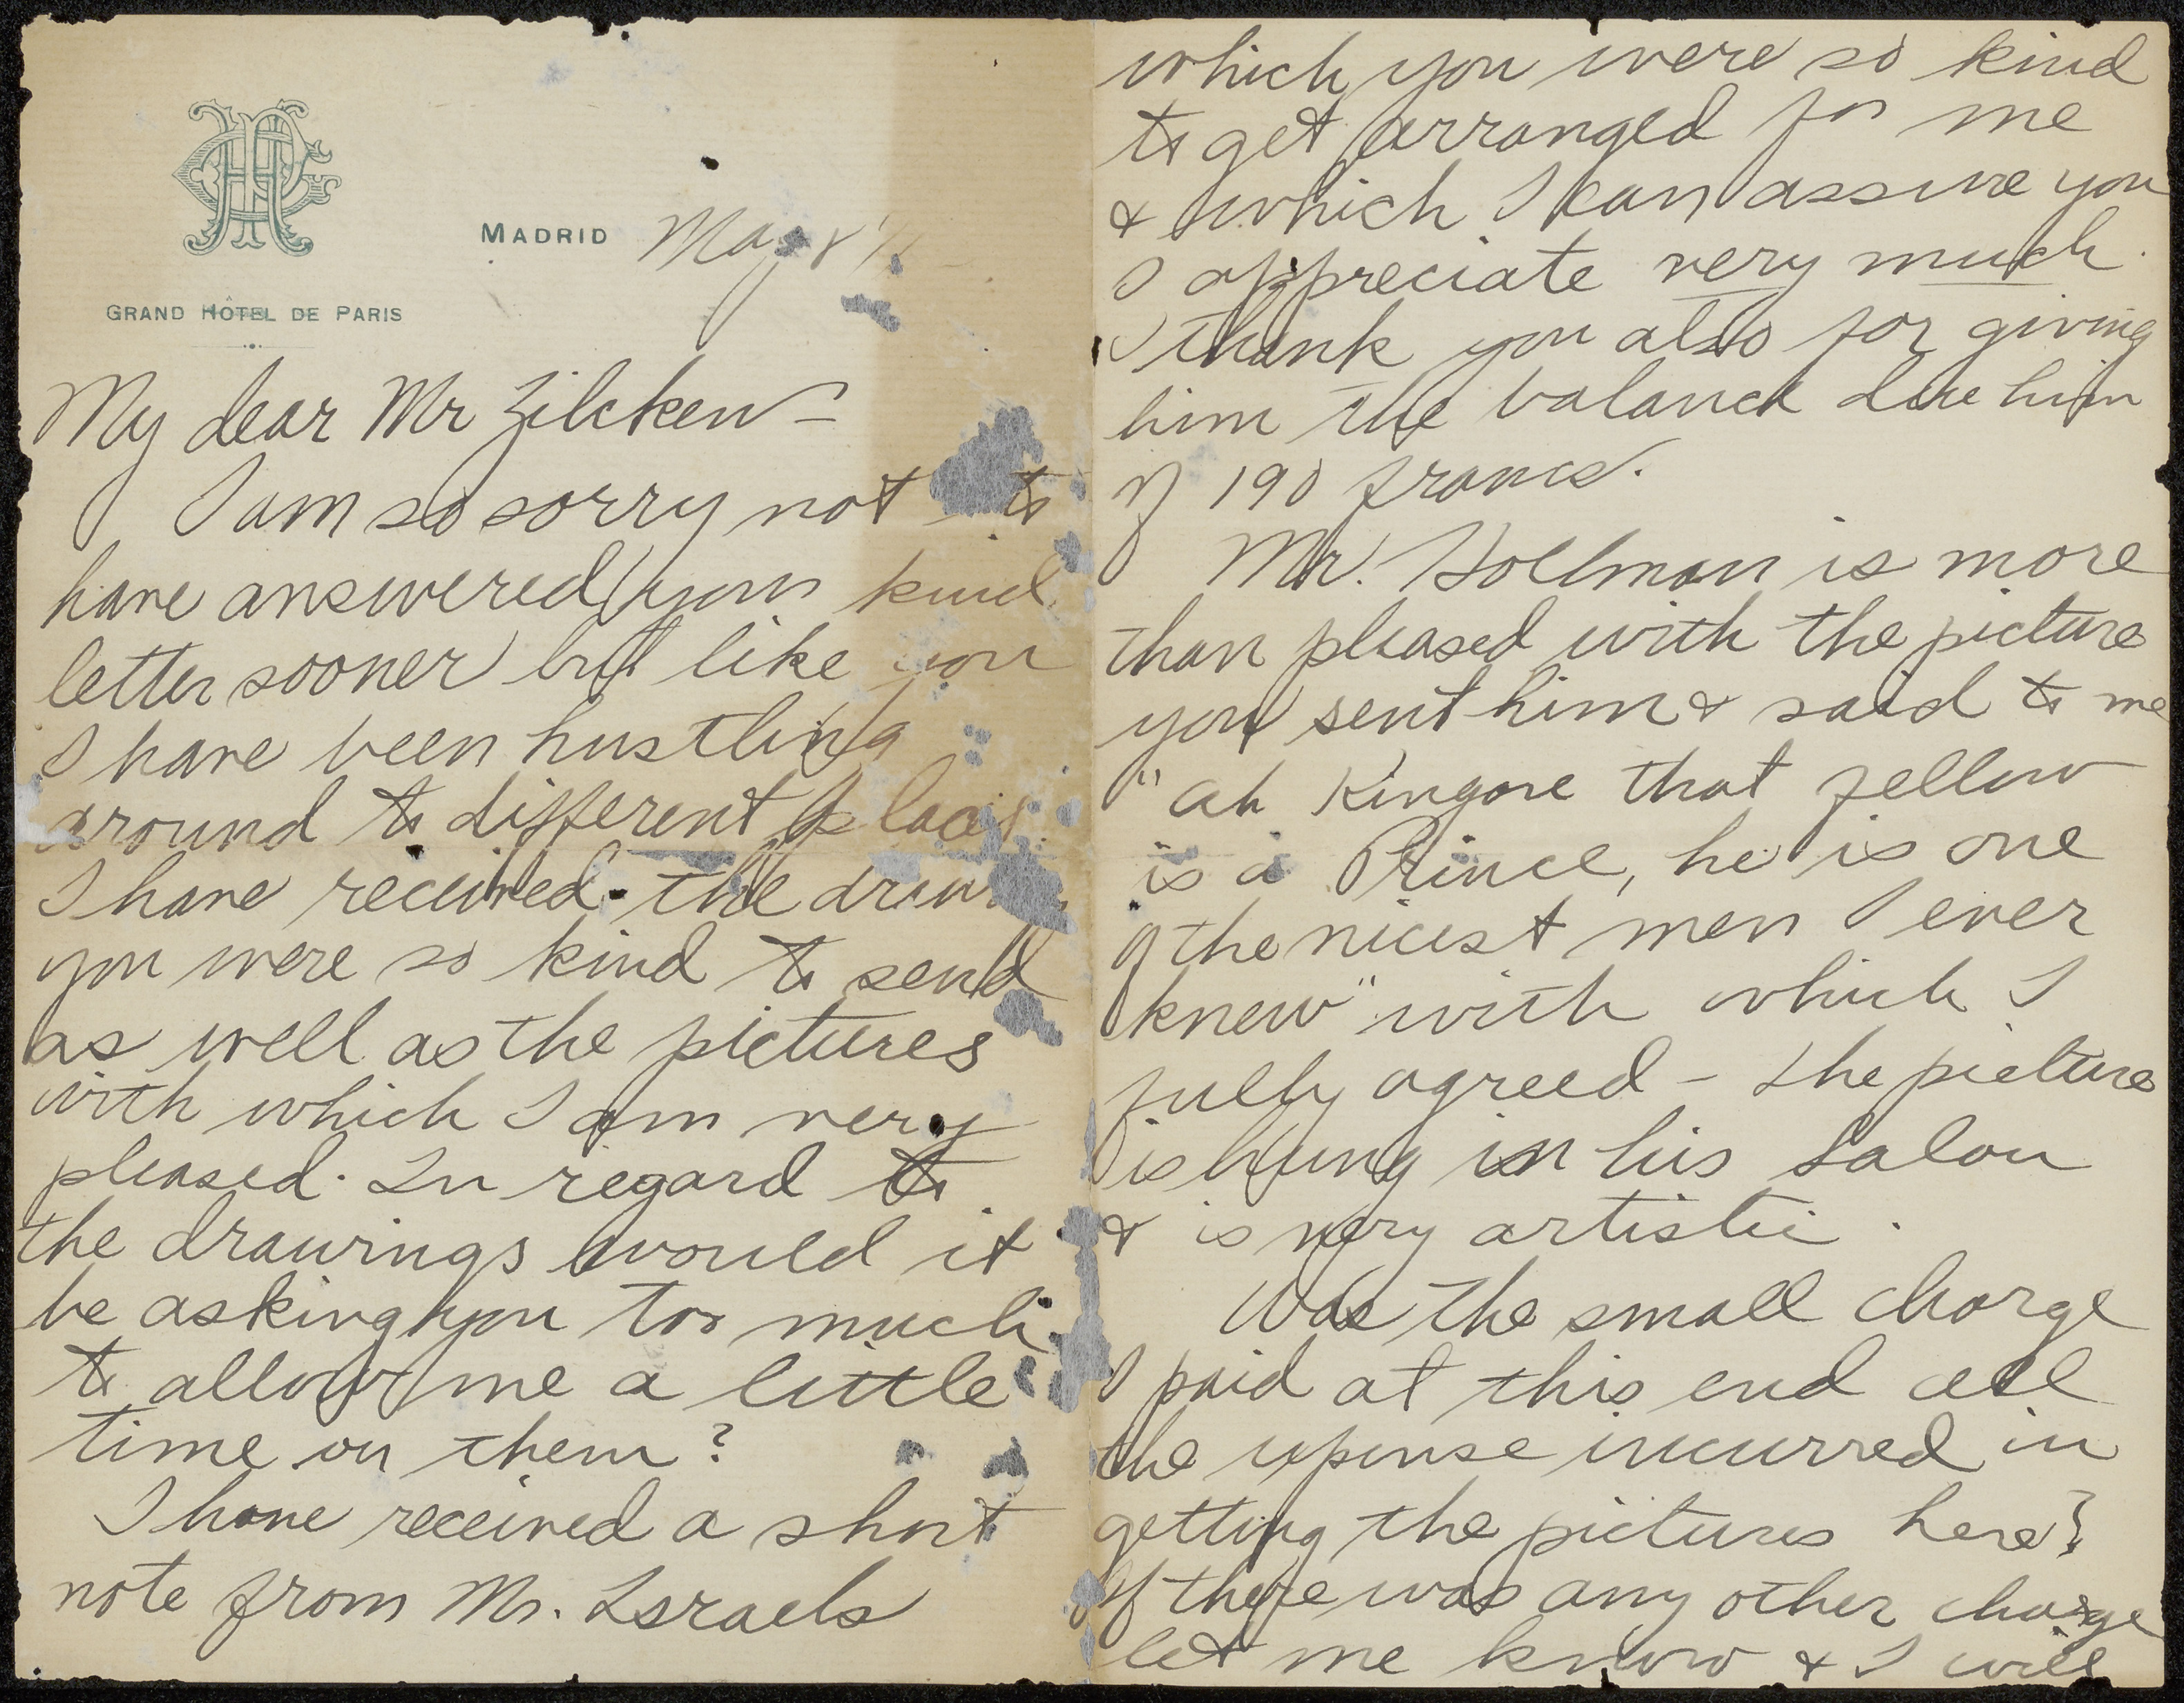 MADRID May 8
GRAND HÔTEL DE PARIS
My dear Mr Zilcken –
I am so sorry not to
have answered your kind
letter sooner but like you
I have been hustling
around to different places
I have received the
you were so kind to send
as well as the pictures
with which I am very
pleased. In regard to
the drawings would it
be asking you too much
to allow me a little
time on them?
I have received a short
note from Mr. Israels
which you were so kind
to get arranged for me
& which I can assure you
I appreciate very much.
I thank you also for giving
him the balance due him
of 190 francs.
Mr. Hollman is more
than pleased with the picture
you sent him & said to me
"ah Kingore that fellow
is a Prince, he is one
of the nicest men I ever
knew" with which I
fully agreed – the picture
is hung in his Salon
& is very artistic.
Was the small charge
I paid at this end all
the expense incurred in
getting the pictures here?
If there was any other charge
let me know & I will